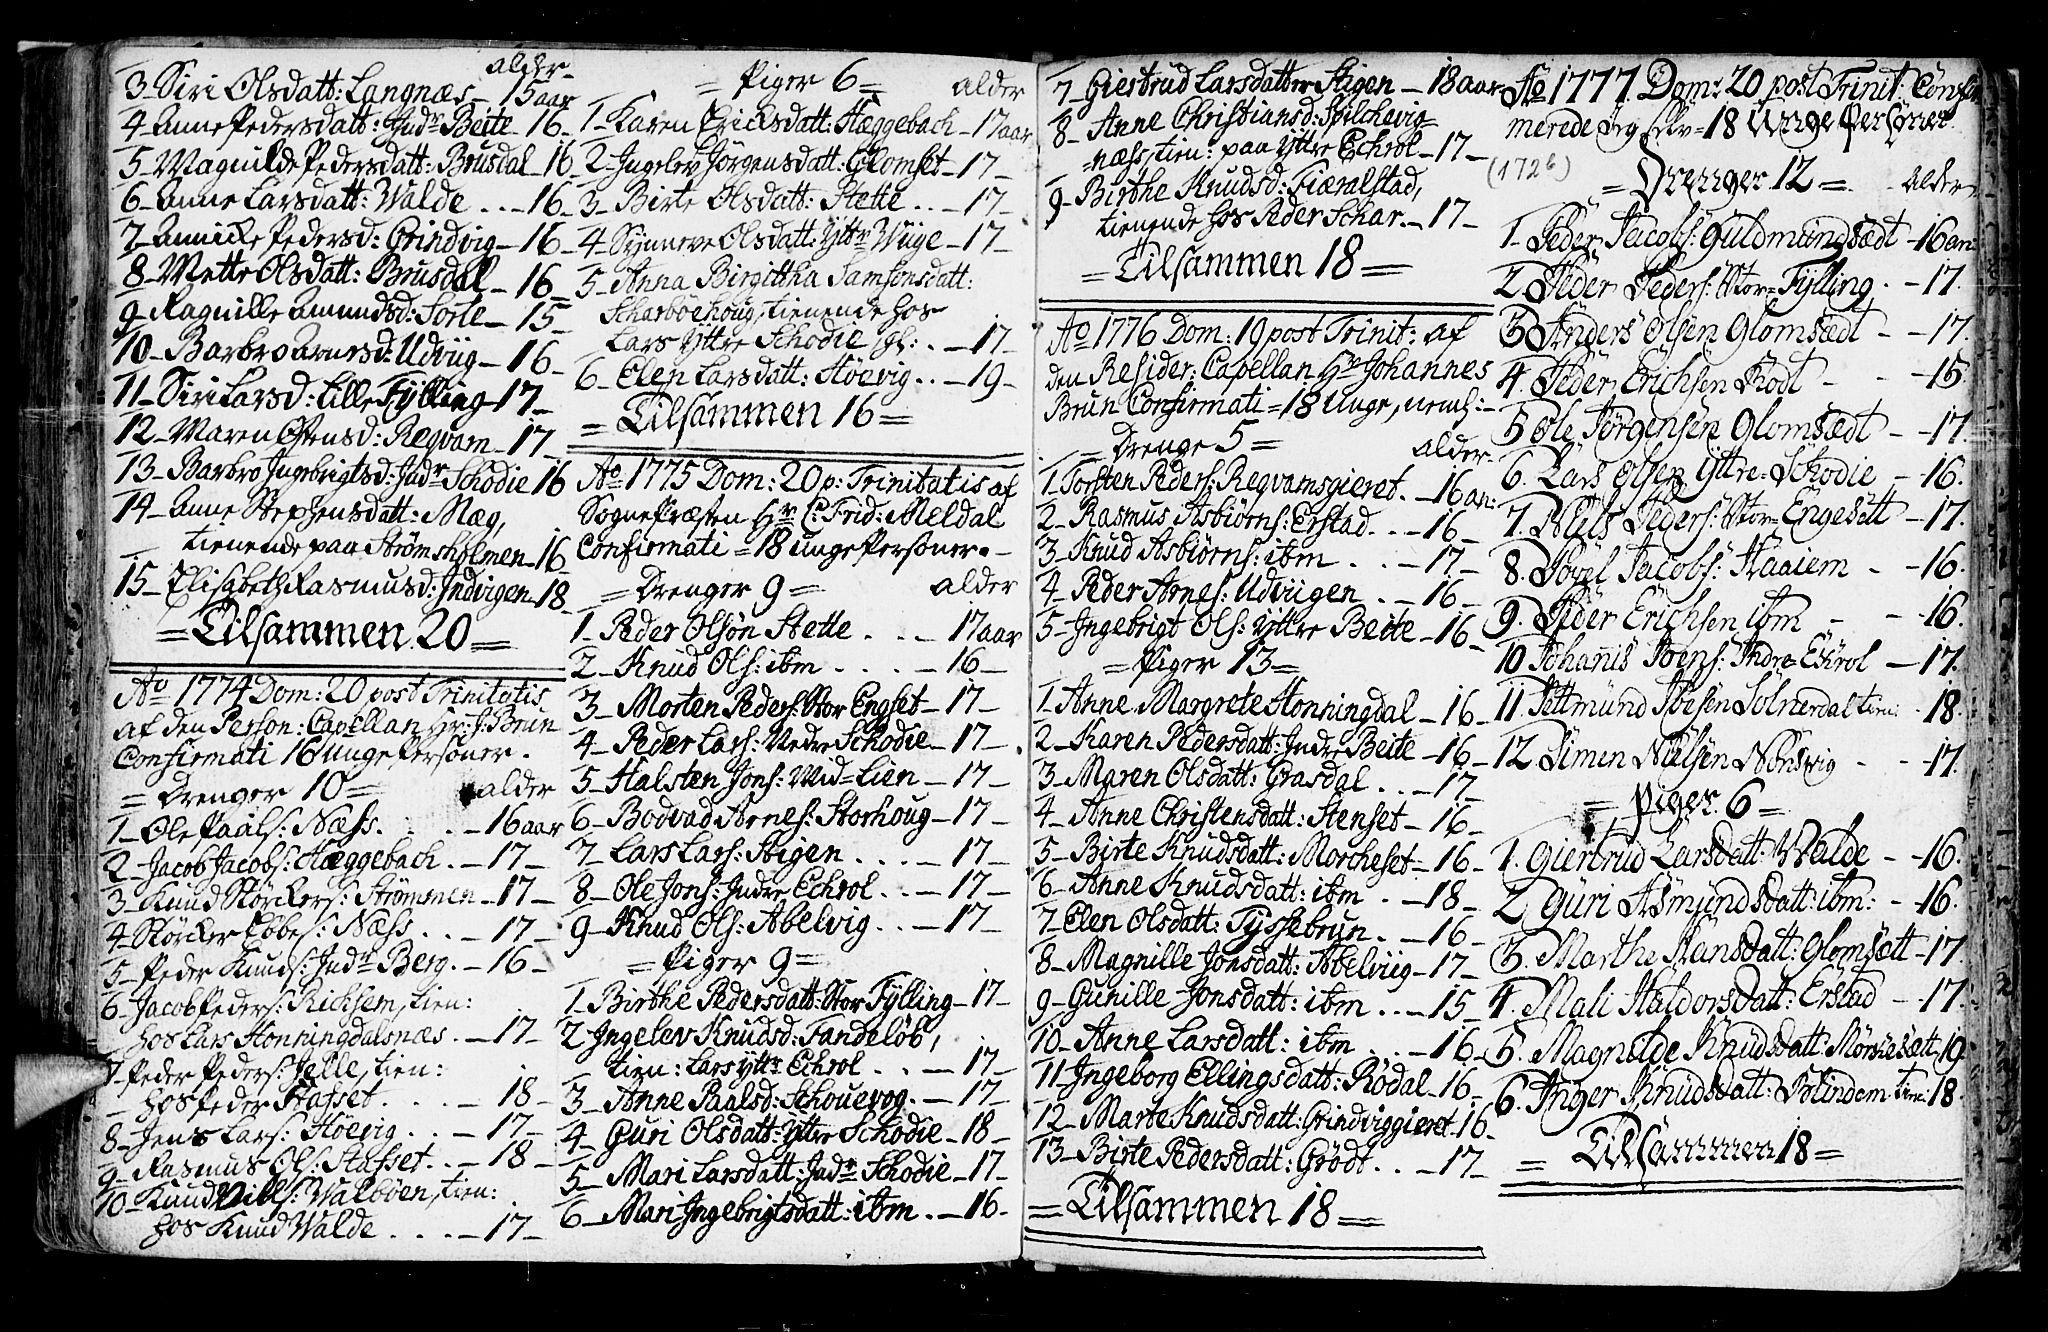 alder
3 Siri Olsdatt: Langnæs – 15 aar
4 – Anne Pedersdatt: Indr Beite – 16 –
5 – Magnilde Pedersdatt: Brusdal 16
6 – Anne Larsdatt: Walde . . – 16 –
7 – Annicke Pedersd: Grindvig – 16 –
8 – Mette Olsdatt: Brusdal – 16 –
9 – Ragnille Amundsd: Sorte – 15 –
10 – Barbro Arnesd: Udviig – 16 –
11 – Siri Larsd: Lille Fylling – 17 –
12 – Maren Ostensd: Reqvam – 17 –
13 – Barbro Ingebrigtsd: Indr Schodie 16
14 – Anne Stephensdatt: Mæg,
tienende paa Strømsholmen – 16 –
15 – Elisabeth Rasmusd: Indvigen – 18 –
= Tilsammen 20 =
Ao 1774 Dom: 20 post Trinitatis
af den Person: Capellan Hr: J: Brun
Confirmati 16 unge Personer .
= Drenger 10 = alder
1 – Ole Paals: Næss . . . – 16 aar
2 – Jacob Jacobs: Hæggebach . – 17 –
3 – Knud Størckers: Strømmen – 17 –
4 – Størcker Tobes: Næss . . – 17 –
5 – Peder Knuds: Indr Berg . – 16 –
6 – Jacob Peders: Richsem, tien:
hos Lars Honningdalsnæs . – 17 –
7 – Peder Peders: Jelle, tien:
hos Peder Hafset . . . – 18 –
8 – Jens Lars: Høevig . . – 17 –
9 – Rasmus Ols: Hafset . . – 18 –
10 – Knud Nills: Walbøen, tien:
hos Knud Walde . . . – 17 –
= Piger 6 = alder
1 – Karen Ericksdatt: Hæggebach – 17 aar
2 – Ingelev Jörgensdatt: Glomset – 17 –
3 – Birte Olsdatt: Stette . . – 17 –
4 – Synneve Olsdatt: Yttr Wiige – 17 –
5 – Anna Birgittha Samsonsdatt:
Scharbøehoug, tienende hos
Lars Yttre Schodie . – 17 –
6 – Elen Larsdatt: Høevig . . – 19 –
= Tilsammen 16 =
Ao 1775 Dom: 20 p: Trinitatis af
Sognepræsten Hr C: Frid: Meldal
Confirmati = 18 unge Personer. –
= Drenger 9 = alder
1 – Peder Olsøn Stette . . . – 17 aar
2 – Knud Ols: ibm . . . . – 16 –
3 – Morten Peders: Stor Engset – 17 –
4 – Peder Lars: Nedre Schodie – 17 –
5 – Halsten Jons: Wid=Lien – 17 –
6 – Bodvad Arnes: Storhoug – 17 –
7 – Lars Lars: Stigen . . . – 17 –
8 – Ole Jons: Indre Echrol . . – 17 –
9 – Knud Ols: Abelvig . . – 17 –
= Piger 9 =
1 – Birthe Pedersdatt: Stor Fylling – 17 –
2 Ingelev Knudsd: Tandeløb,
tien: Lars yttr Echrol . . – 17 –
3 – Anne Paalsd: Schouevog . – 17 –
4 – Guri Olsdatt: Yttre Schodie – 18 –
5 – Mari Larsdatt: Indr Schodie – 17 –
6 – Mari Ingebrigtsdatt: ibm . – 16 –
7 – Giertrud Larsdatter Stigen – 18 aar
8 – Anne Christiansd: Spilchevig=
=næss, tien: paa Yttre Echrol – 17 –
9 – Birthe Knudsd: Fiæralstad,
tienende hos Peder Schar . – 17 –
= Tilsammen 18 =
Ao 1776 Dom: 19 post Trinit: af
den Resider: Capellan Hr Johannes
Brun Confirmati = 18 unge, neml: –
= Drenge 5 = alder
1 – Torsten Peders: Reqvamsgieret . – 16 aar:
2 – Rasmus Asbiørns: Erstad . . . – 16 –
3 – Knud Asbiørns: ibm . . . – 17 –
4 – Peder Arnes: Udviigen . . – 16 –
5 – Ingebrigt Ols: Yttre Beite – 16 –
= Piger 13 =
1 – Anne Margrete Honningdal – 16 –
2 – Karen Pedersdatt: Indre Beite – 16 –
3 – Maren Olsdatt: Grasdal . . . – 17 –
4 – Anne Christensdatt: Stenset – 16 –
5 – Birte Knudsdatt: Morcheset – 16 –
6 – Anne Knudsdatt: ibm . – 18 –
7 – Elen Olsdatt: Tyssebrun . – 16 –
8 – Magnille Jonsdatt: Abelviig – 17 –
9 – Gunille Jonsdatt: ibm . . – 15 –
10 – Anne Larsdatt: ibm . . . – 16 –
11 – Ingeborg Ellingsdatt: Rødal – 16 –
12 – Marte Knudsdatt: Grindviggieret – 16 –
13 – Birte Pedersdatt: Grödt . . . – 17 –
= Tilsammen 18 =
Ao 1777. Dom: 20 post Trinit: Confir
merede Jeg 18 Unge Personer
(1726)
= Drenger 12 = alder
1 – Peder Jacobs: Guldmundsædt – 16 aar:
2 Peder Peders: Stor=Fylling . – 17.
3 Anders Olsen Glomsædt – – 17.
4. Peder Erichsen Krodt – – 15.
5 Ole Jörgensen Glomsædt – – 17.
6. Lars Olsen Yttre=Schodie – 16.
7. Niels Peders: Stor=Engesætt – 17.
8. Povel Jacobs: Haaiem – – 16.
9. Peder Erichsen ibm – – 16.
10 Johannis Joens: Indre Ekrol – 17.
11. Pettmund Joesen Solnerdal tien: . 18.
12 Simen Nielsen Nonsvig – – 17.
= Piger. 6 =
1. Giertrud Larsdatt: Walde – – 16.
2 Guri Asmundsdatt: ibm: – – 16.
3. Marthe Hansdatt: Glomsætt – 17.
4. Mali Haldorsdatt: Erstad – – 17.
5. Magnilde Knudsdatt: Morsiesætt – 19.
6. Inger Knudsdatt: Blindem tien: 18.
= Tilsammen 18 =